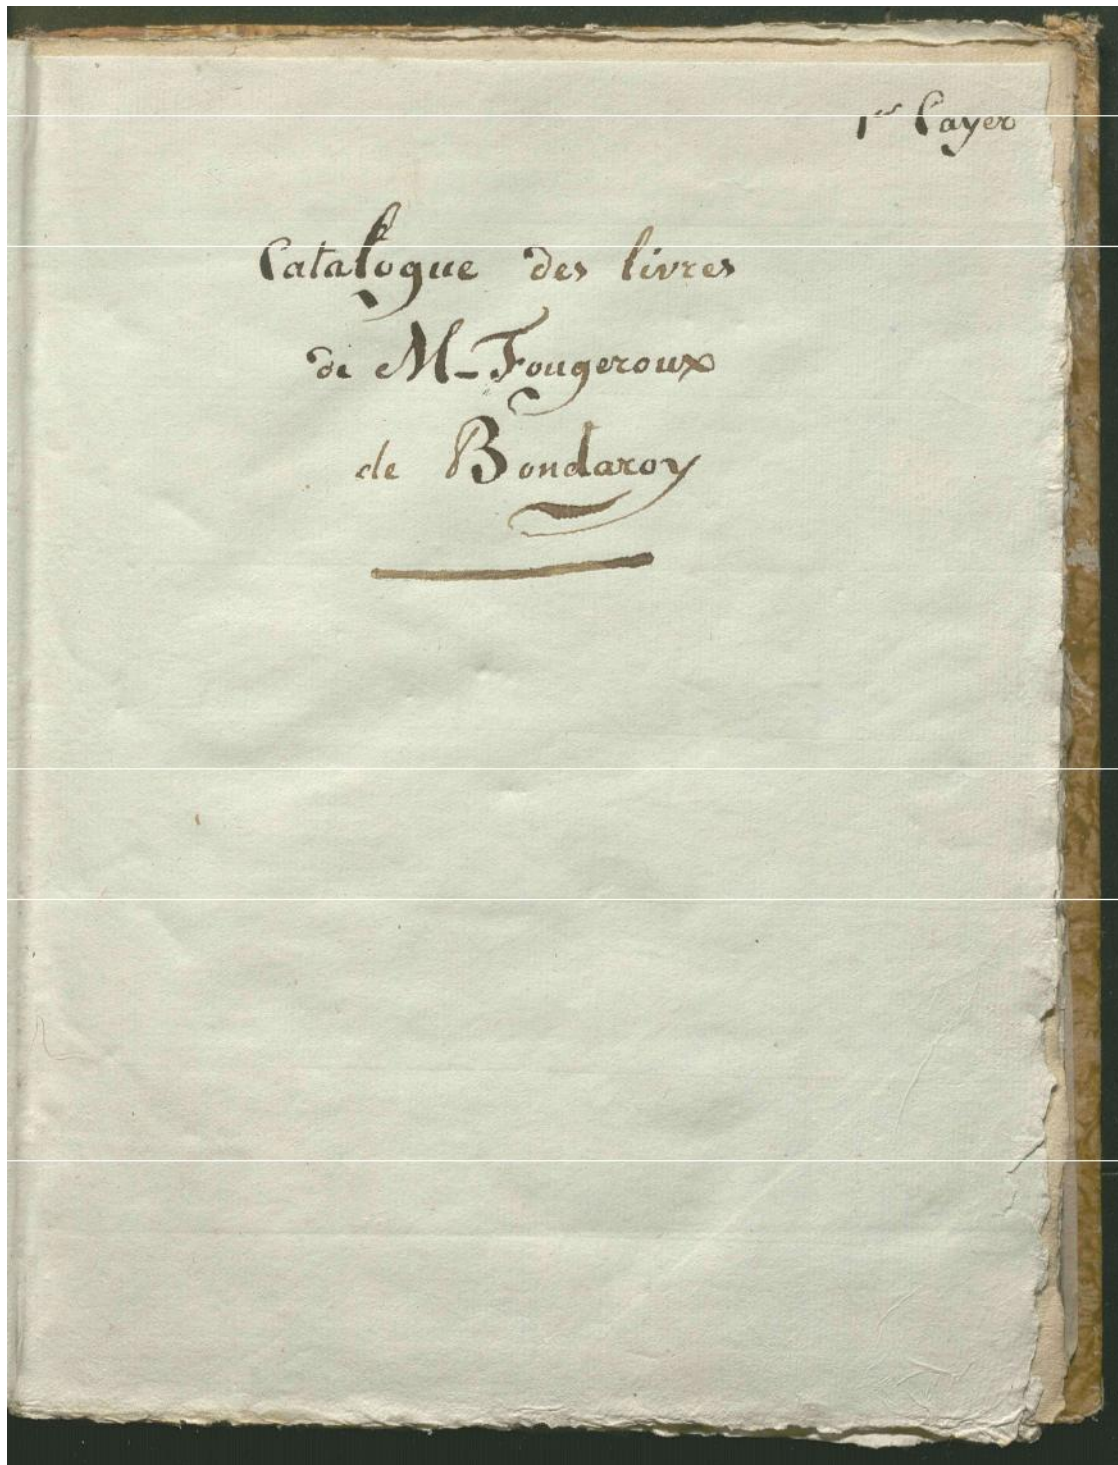 1er Cayer
Catalogue des livres
de M- Fougeroux
de Bondaroy